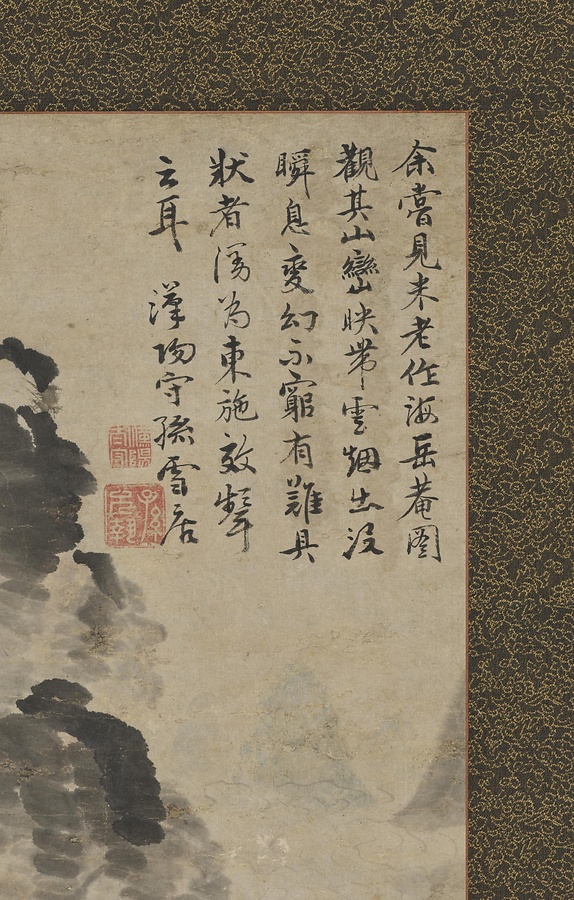 余嘗見米老作海岳菴图
觀其山巒映帶雲烟出沒
瞬息變幻不窮有難具
狀者漫為東施效颦
云耳 漢陽守孫雪居
漢陽
孫克弘